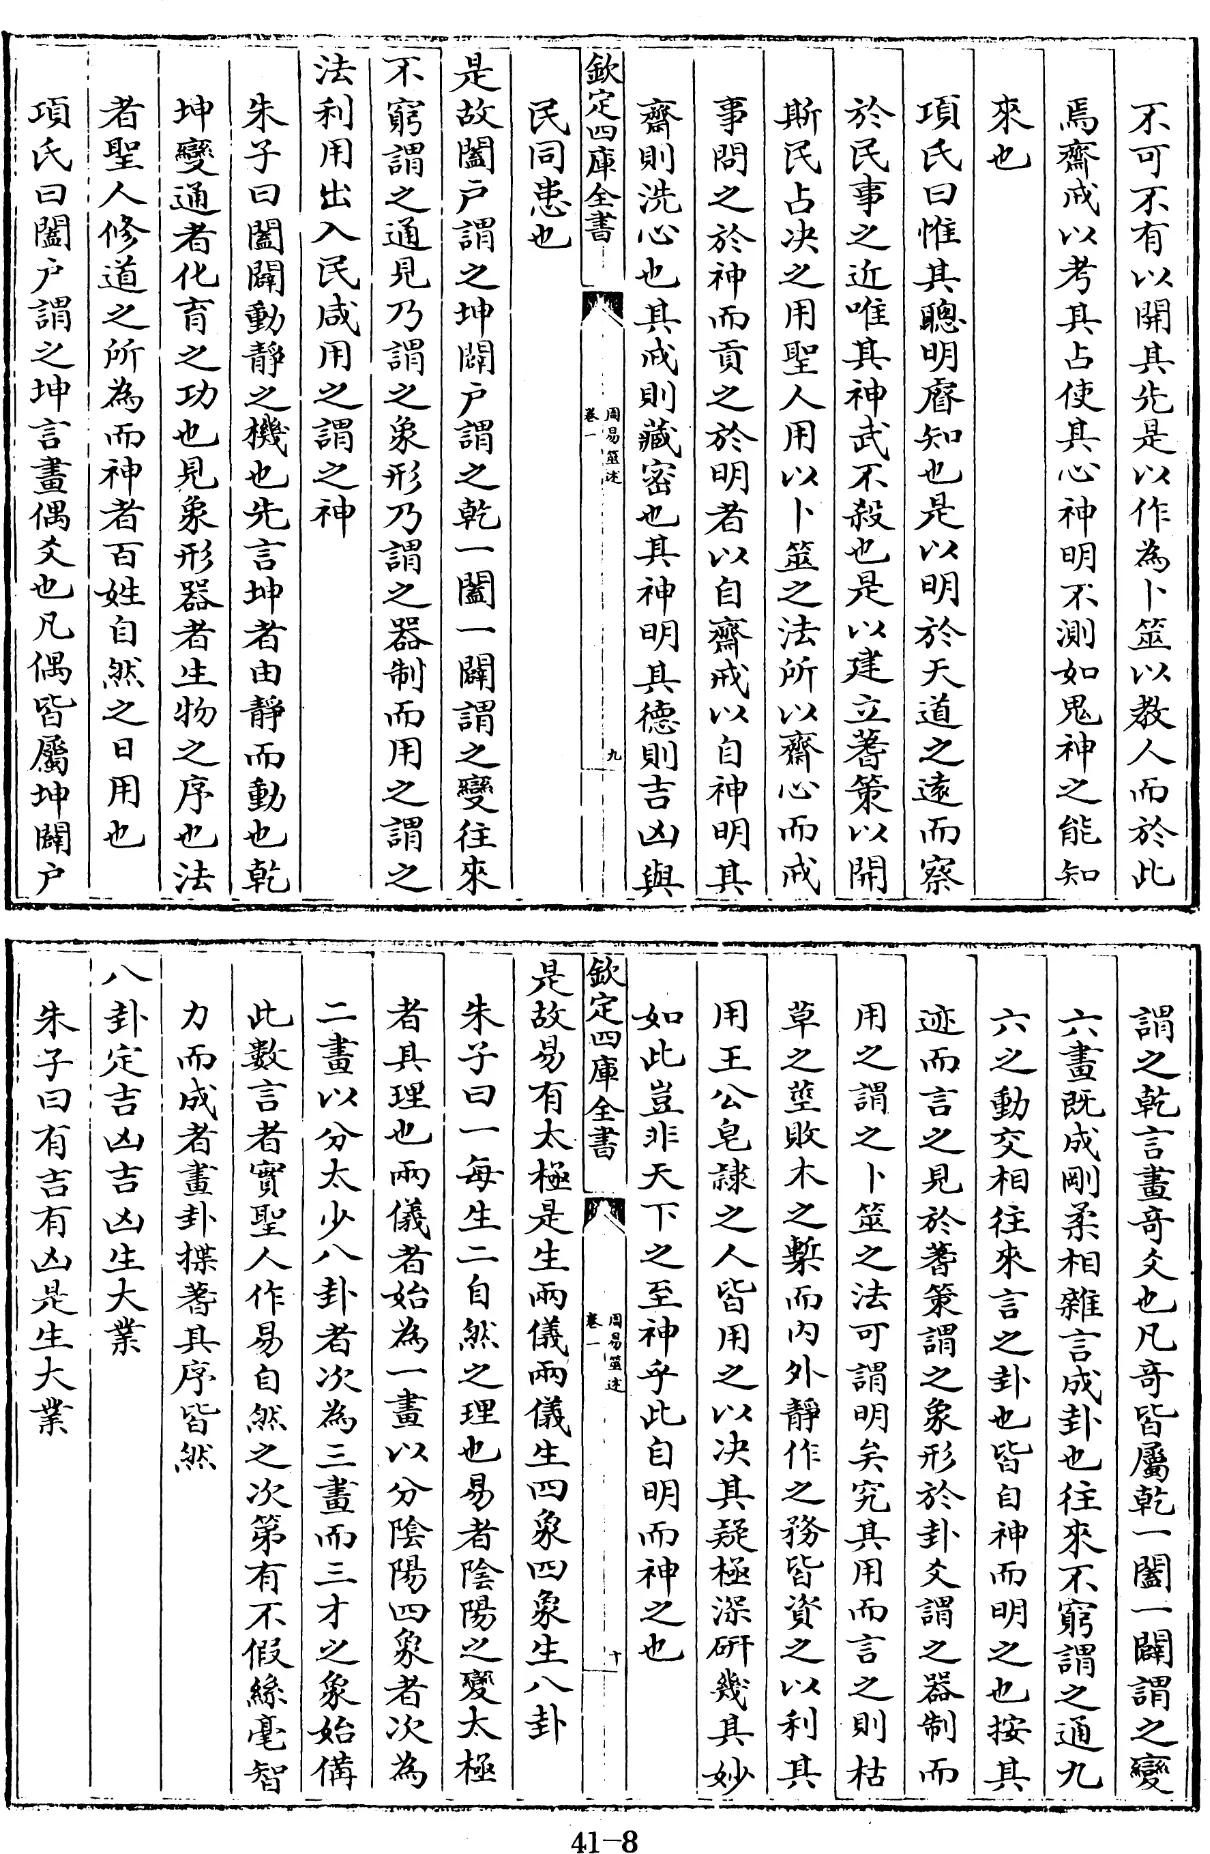 不可不有以開其先是以作為卜筮以教人而於此
焉齋戒以考其占使其心神明不測如鬼神之能知
來也
項氏曰惟其聰明睿知也是以明於天道之遠而察
於民事之近唯其神武不殺也是以建立蓍策以開
斯民占決之用聖人用以卜筮之法所以齋心而戒
事問之於神而貢之於明者以自齋戒以自神明其
齋則洗心也其戒則藏密也其神明其德則吉凶與
民同患也
欽定四庫全書
周易筮述
卷一
九
是故闔户謂之坤闢户謂之乾一闔一闢謂之變往來
不窮謂之通見乃謂之象形乃謂之器制而用之謂之
法利用出入民咸用之謂之神
朱子曰闔闢動靜之機也先言坤者由靜而動也乾
坤變通者化育之功也見象形器者生物之序也法
者聖人修道之所為而神者百姓自然之日用也
項氏曰闔户謂之坤言畫偶爻也凡偶皆屬坤闢户
謂之乾言畫奇爻也凡奇皆屬乾一闔一闢謂之變
六畫既成剛柔相雜言成卦也往來不窮謂之通九
六之動交相往來言之卦也皆自神而明之也按其
迹而言之見於蓍策謂之象形於卦爻謂之器制而
用之謂之卜筮之法可謂明矣究其用而言之則枯
草之莖敗木之槧而内外靜作之務皆資之以利其
用王公皂隷之人皆用之以決其疑極深研幾其妙
如此豈非天下之至神乎此自明而神之也
欽定四庫全書
周易筮述
卷一
十
是故易有太極是生兩儀兩儀生四象四象生八卦
朱子曰一每生二自然之理也易者陰陽之變太極
者其理也兩儀者始為一畫以分陰陽四象者次為
二畫以分太少八卦者次為三畫而三才之象始備
此數言者實聖人作易自然之次第有不假絲毫智
力而成者畫卦揲蓍其序皆然
八卦定吉凶吉凶生大業
朱子曰有吉有凶是生大業
41-8